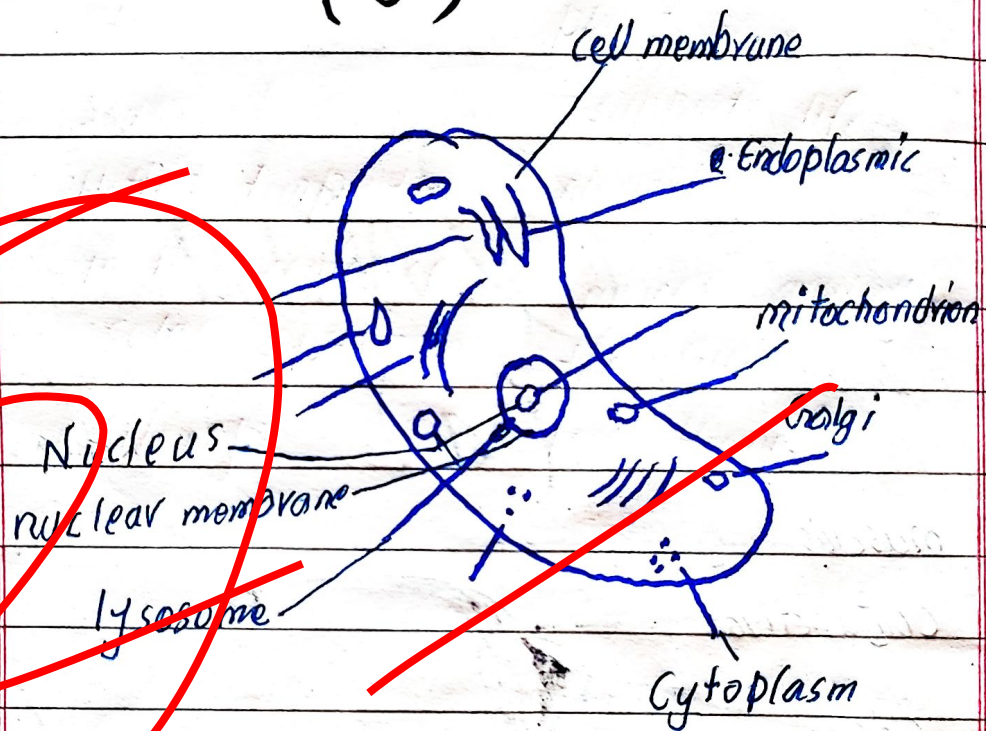 cell membrane
Endoplasmic
mitochondrion
Golgi
Nucleus
nuclear membrane
lysosome
Cytoplasm